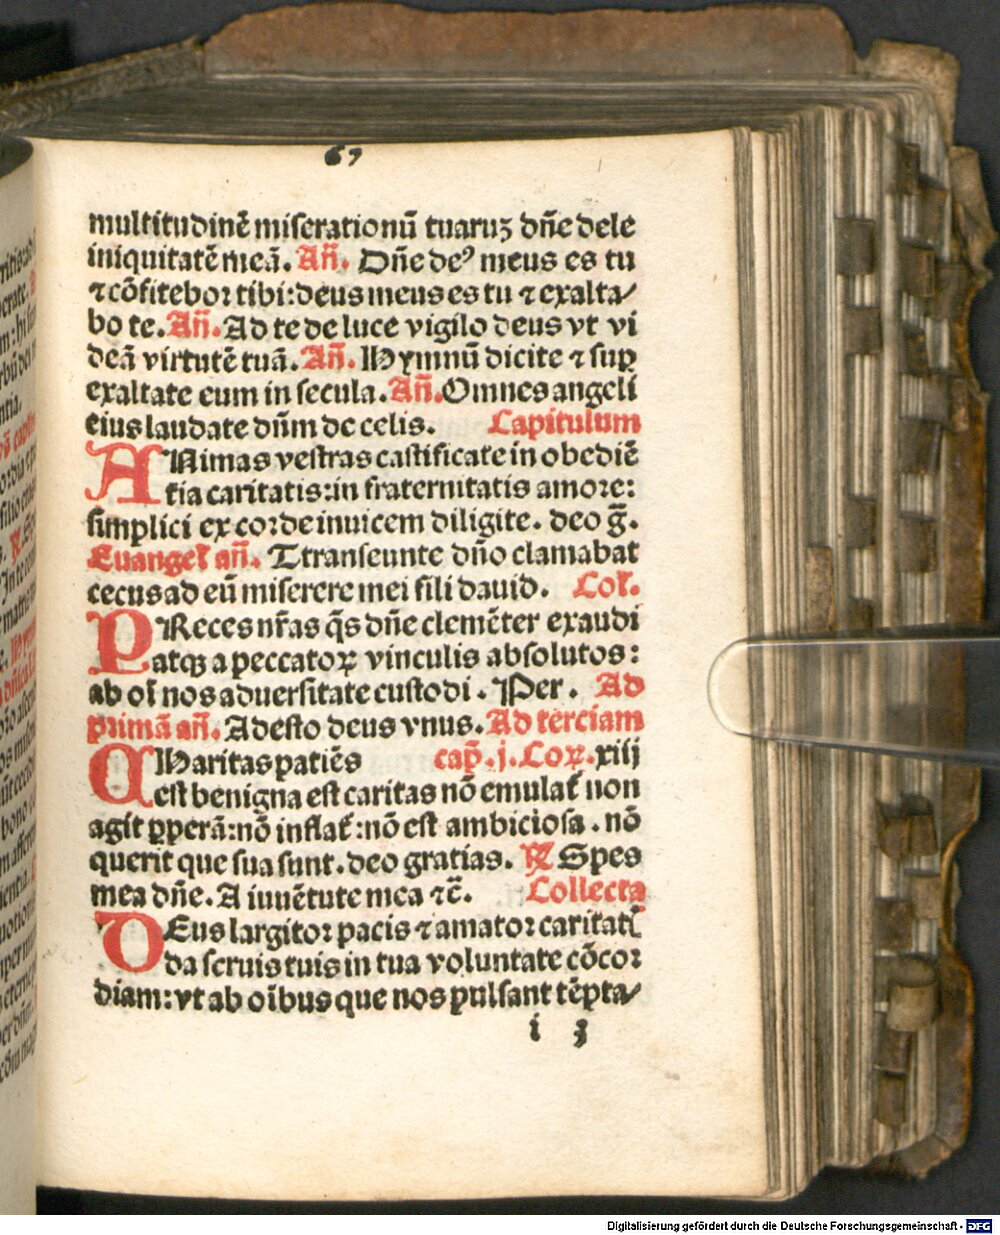 67
multitudinē miserationū tuaruʒ dn̄e dele
iniquitatē meā. An̄. Dn̄e deꝰ meus es tu
⁊ cōfitebor tibi: deus meus es tu ⁊ exalta/
bo te. An̄. Ad te de luce vigilo deus vt vi
deā virtutē tuā. An̄. Hymnū dicite ⁊ suꝑ
exaltate eum in secula. An̄. Omnes angeli
eius laudate dn̄m de celis. Capitulum
ANimas vestras castificate in obediē
tia caritatis: in fraternitatis amore:
simplici ex corde inuicem diligite. deo g̅.
Euangeł an̄. Ttranseunte dn̄o clamabat
cecus ad eū miserere mei fili dauid. Coł.
PReces nr̄as q̄s dn̄e clemēter exaudi
atqꝫ a peccatoꝝ vinculis absolutos:
ab oī nos aduersitate custodi. Per. Ad
primā an̄. Adesto deus vnus. Ad terciam
CHaritas patiēs cap̄. j. Coꝝ. xiij
est benigna est caritas nō emulat᷑ non
agit ꝑperā: nō inflat᷑: nō est ambiciosa. nō
querit que sua sunt. deo gratias. ℟ Spes
mea dn̄e. A iuuētute mea ⁊c̄. Collecta
DEus largitor pacis ⁊ amator caritatꝭ
da seruis tuis in tua voluntate cōcor
diam: vt ab oībus que nos pulsant tēpta/
i 3
Digitalisierung gefördert durch die Deutsche Forschungsgemeinschaft - DFG